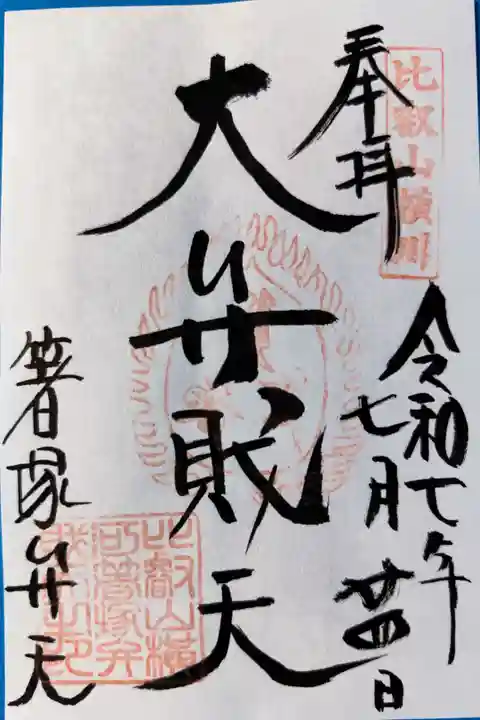 比叡山横川
奉拝
令和七年
七月廿四日
大弁財天
箸塚弁天
比叡山横
川箸塚弁